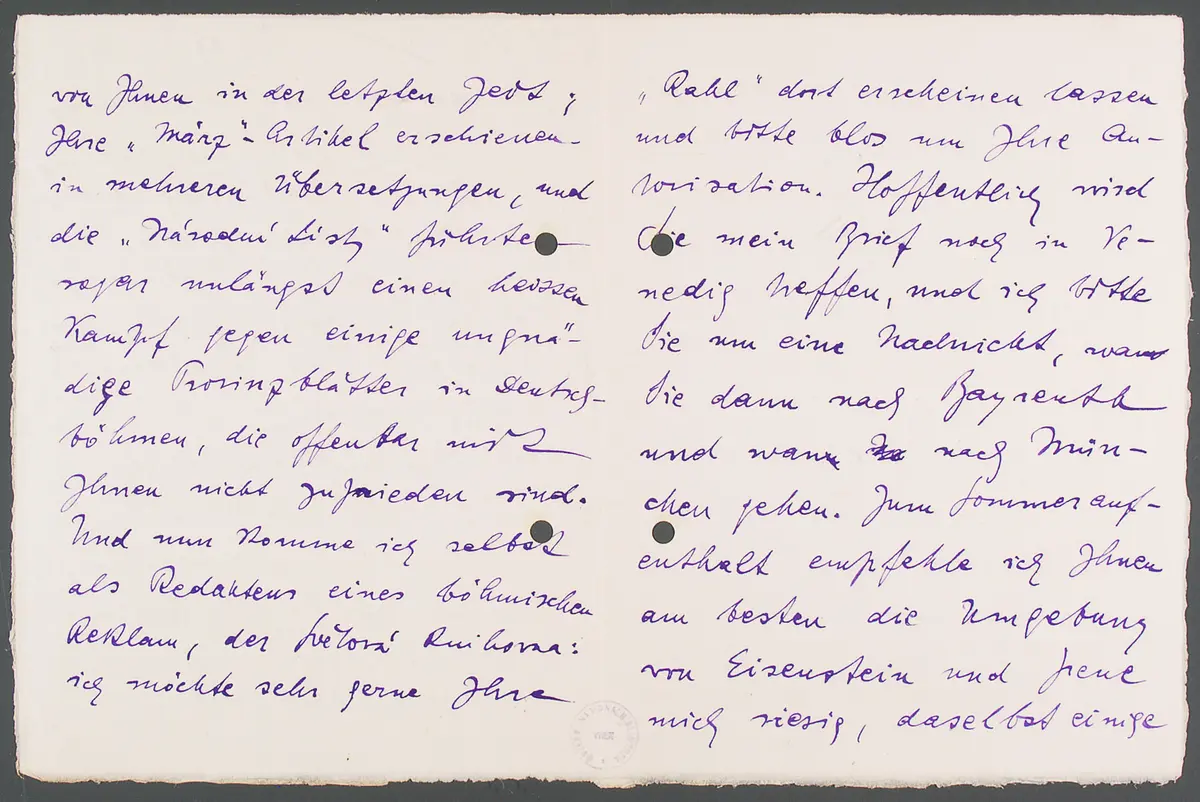 von Ihnen in der letzten Zeit;
Ihre „März"-Artikel erschienen
in mehreren Übersetzungen, und
die „Národní Listy" führte
sogar unlängst einen heissen
Kampf gegen einige ungnä-
dige Provinzblätter in Deutsch-
böhmen, die offenbar mit
Ihnen nicht zufrieden sind.
Und nun komme ich selbst
als Redakteur eines böhmischen
Reklam, der Světová Knihovna:
ich möchte sehr gerne Ihre
„Rahl" dort erscheinen lassen
und bitte blos um Ihre Au-
torisation. Hoffentlich wird
Sie mein Brief noch in Ve-
nedig treffen, und ich bitte
Sie um eine Nachricht, wann
Sie dann nach Bayreuth
und wann nach Mün-
chen gehen. Zum Sommerauf-
enthalt empfehle ich Ihnen
am besten die Umgebung
von Eisenstein und freue
mich riesig, daselbst einige